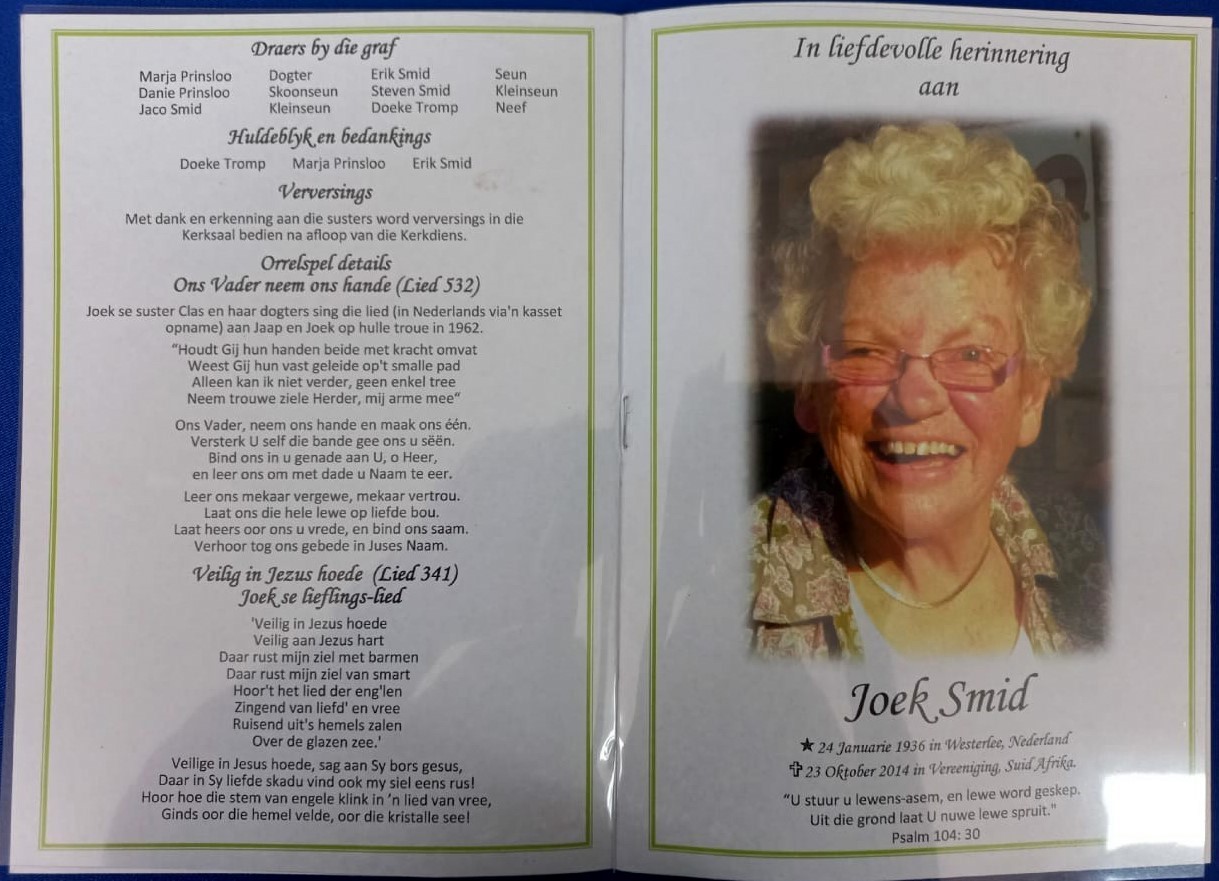 Draers by die graf
Marja Prinsloo Dogter Erik Smid Seun
Danie Prinsloo Skoonseun Steven Smid Kleinseun
Jaco Smid Kleinseun Doeke Tromp Neef
Huldeblyk en bedankings
Doeke Tromp Marja Prinsloo Erik Smid
Verversings
Met dank en erkenning aan die susters word verversings in die
Kerksaal bedien na afloop van die Kerkdiens.
Orrelspel details
Ons Vader neem ons hande (Lied 532)
Joek se suster Clas en haar dogters sing die lied (in Nederlands via'n kasset
opname) aan Jaap en Joek op hulle troue in 1962.
“Houdt Gij hun handen beide met kracht omvat
Weest Gij hun vast geleide op't smalle pad
Alleen kan ik niet verder, geen enkel tree
Neem trouwe ziele Herder, mij arme mee“
Ons Vader, neem ons hande en maak ons één.
Versterk U self die bande gee ons u sëën.
Bind ons in u genade aan U, o Heer,
en leer ons om met dade u Naam te eer.
Leer ons mekaar vergewe, mekaar vertrou.
Laat ons die hele lewe op liefde bou.
Laat heers oor ons u vrede, en bind ons saam.
Verhoor tog ons gebede in Juses Naam.
Veilig in Jezus hoede (Lied 341)
Joek se lieflings-lied
'Veilig in Jezus hoede
Veilig aan Jezus hart
Daar rust mijn ziel met barmen
Daar rust mijn ziel van smart
Hoor't het lied der eng'len
Zingend van liefd' en vree
Ruisend uit's hemels zalen
Over de glazen zee.'
Veilige in Jesus hoede, sag aan Sy bors gesus,
Daar in Sy liefde skadu vind ook my siel eens rus!
Hoor hoe die stem van engele klink in 'n lied van vree,
Ginds oor die hemel velde, oor die kristalle see!
In liefdevolle herinnering
aan
Joek Smid
★ 24 Januarie 1936 in Westerlee, Nederland
✞ 23 Oktober 2014 in Vereeniging, Suid Afrika.
“U stuur u lewens-asem, en lewe word geskep.
Uit die grond laat U nuwe lewe spruit."
Psalm 104: 30